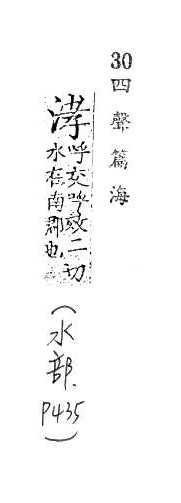 30 四聲篇海
涍
呼交呼效二切
水在南郡也
(水部. P435)